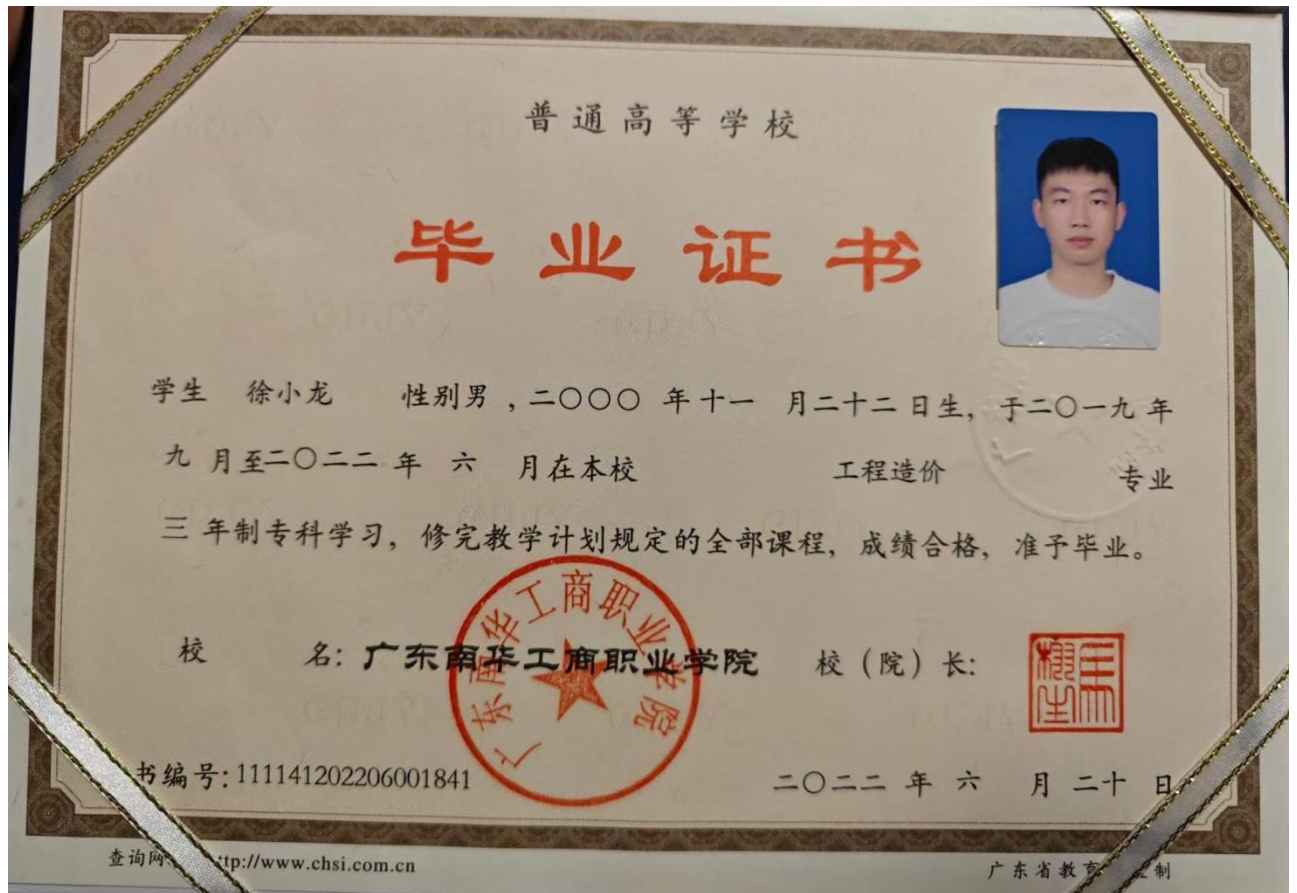 普通高等学校
毕业证书
学生 徐小龙 性别男，二〇〇〇 年十一 月二十二日生，于二〇一九年
九 月至二〇二二 年 六 月在本校 工程造价 专业
三 年制专科学习，修完教学计划规定的全部课程，成绩合格，准予毕业。
校 名：广东南华工商职业学院 校（院）长：
广东南华工商职业学院
书编号：111141202206001841 二〇二二 年 六 月 二十 日
查询网 tp://www.chsi.com.cn 广东省教育 制